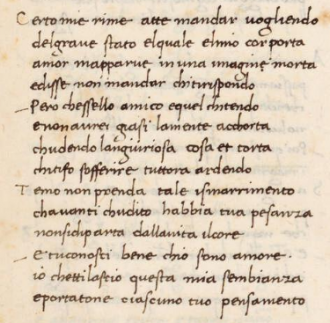 Certo mie rime atte mandar vogliendo
delgrave stato elquale elmio cor porta
amor mapparue in una imagine morta
edisse non mandar chitirispondo
Pero chessello amico e quel chitendo
e non avrei gia si lamente acchorta
chudendo langiuriosa cosa et torta
chitifo sofferire tuttora ardendo
Temo non prenda tale ismarrimento
chavanti chudito habbia tua pesanza
non si diparta dalla vita ilcore
E tu conosci bene chio sono amore
io chetti lascio questa mia sembianza
e portatone ciascuno tuo pensamento